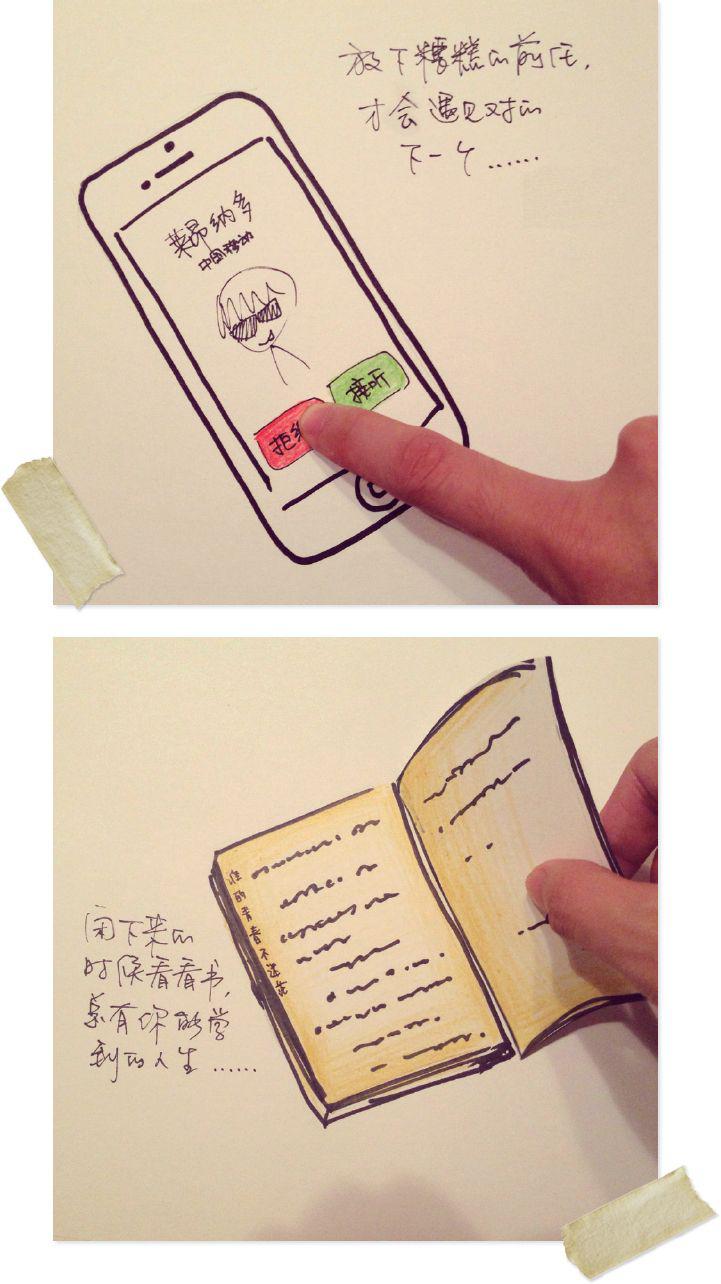 放下糟糕的前任，
才会遇见对的
下一个……
莱昂纳多
中国移动
接听
拒绝
谁的青春不迷茫
闲下来的
时候看看书，
总有你能学
到的人生……